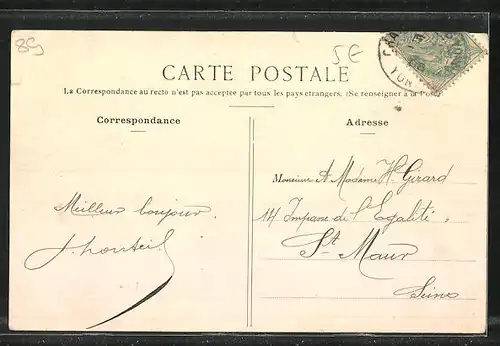 89
5€
CARTE POSTALE
La Correspondance au recto n'est pas acceptée par tous les pays étrangers. (Se renseigner à la Poste)
Correspondance
Adresse
Monsieur & Madame H. Girard
Meilleur bonjour.
14 Impasse de l'Egalité,
St Maur
Seine